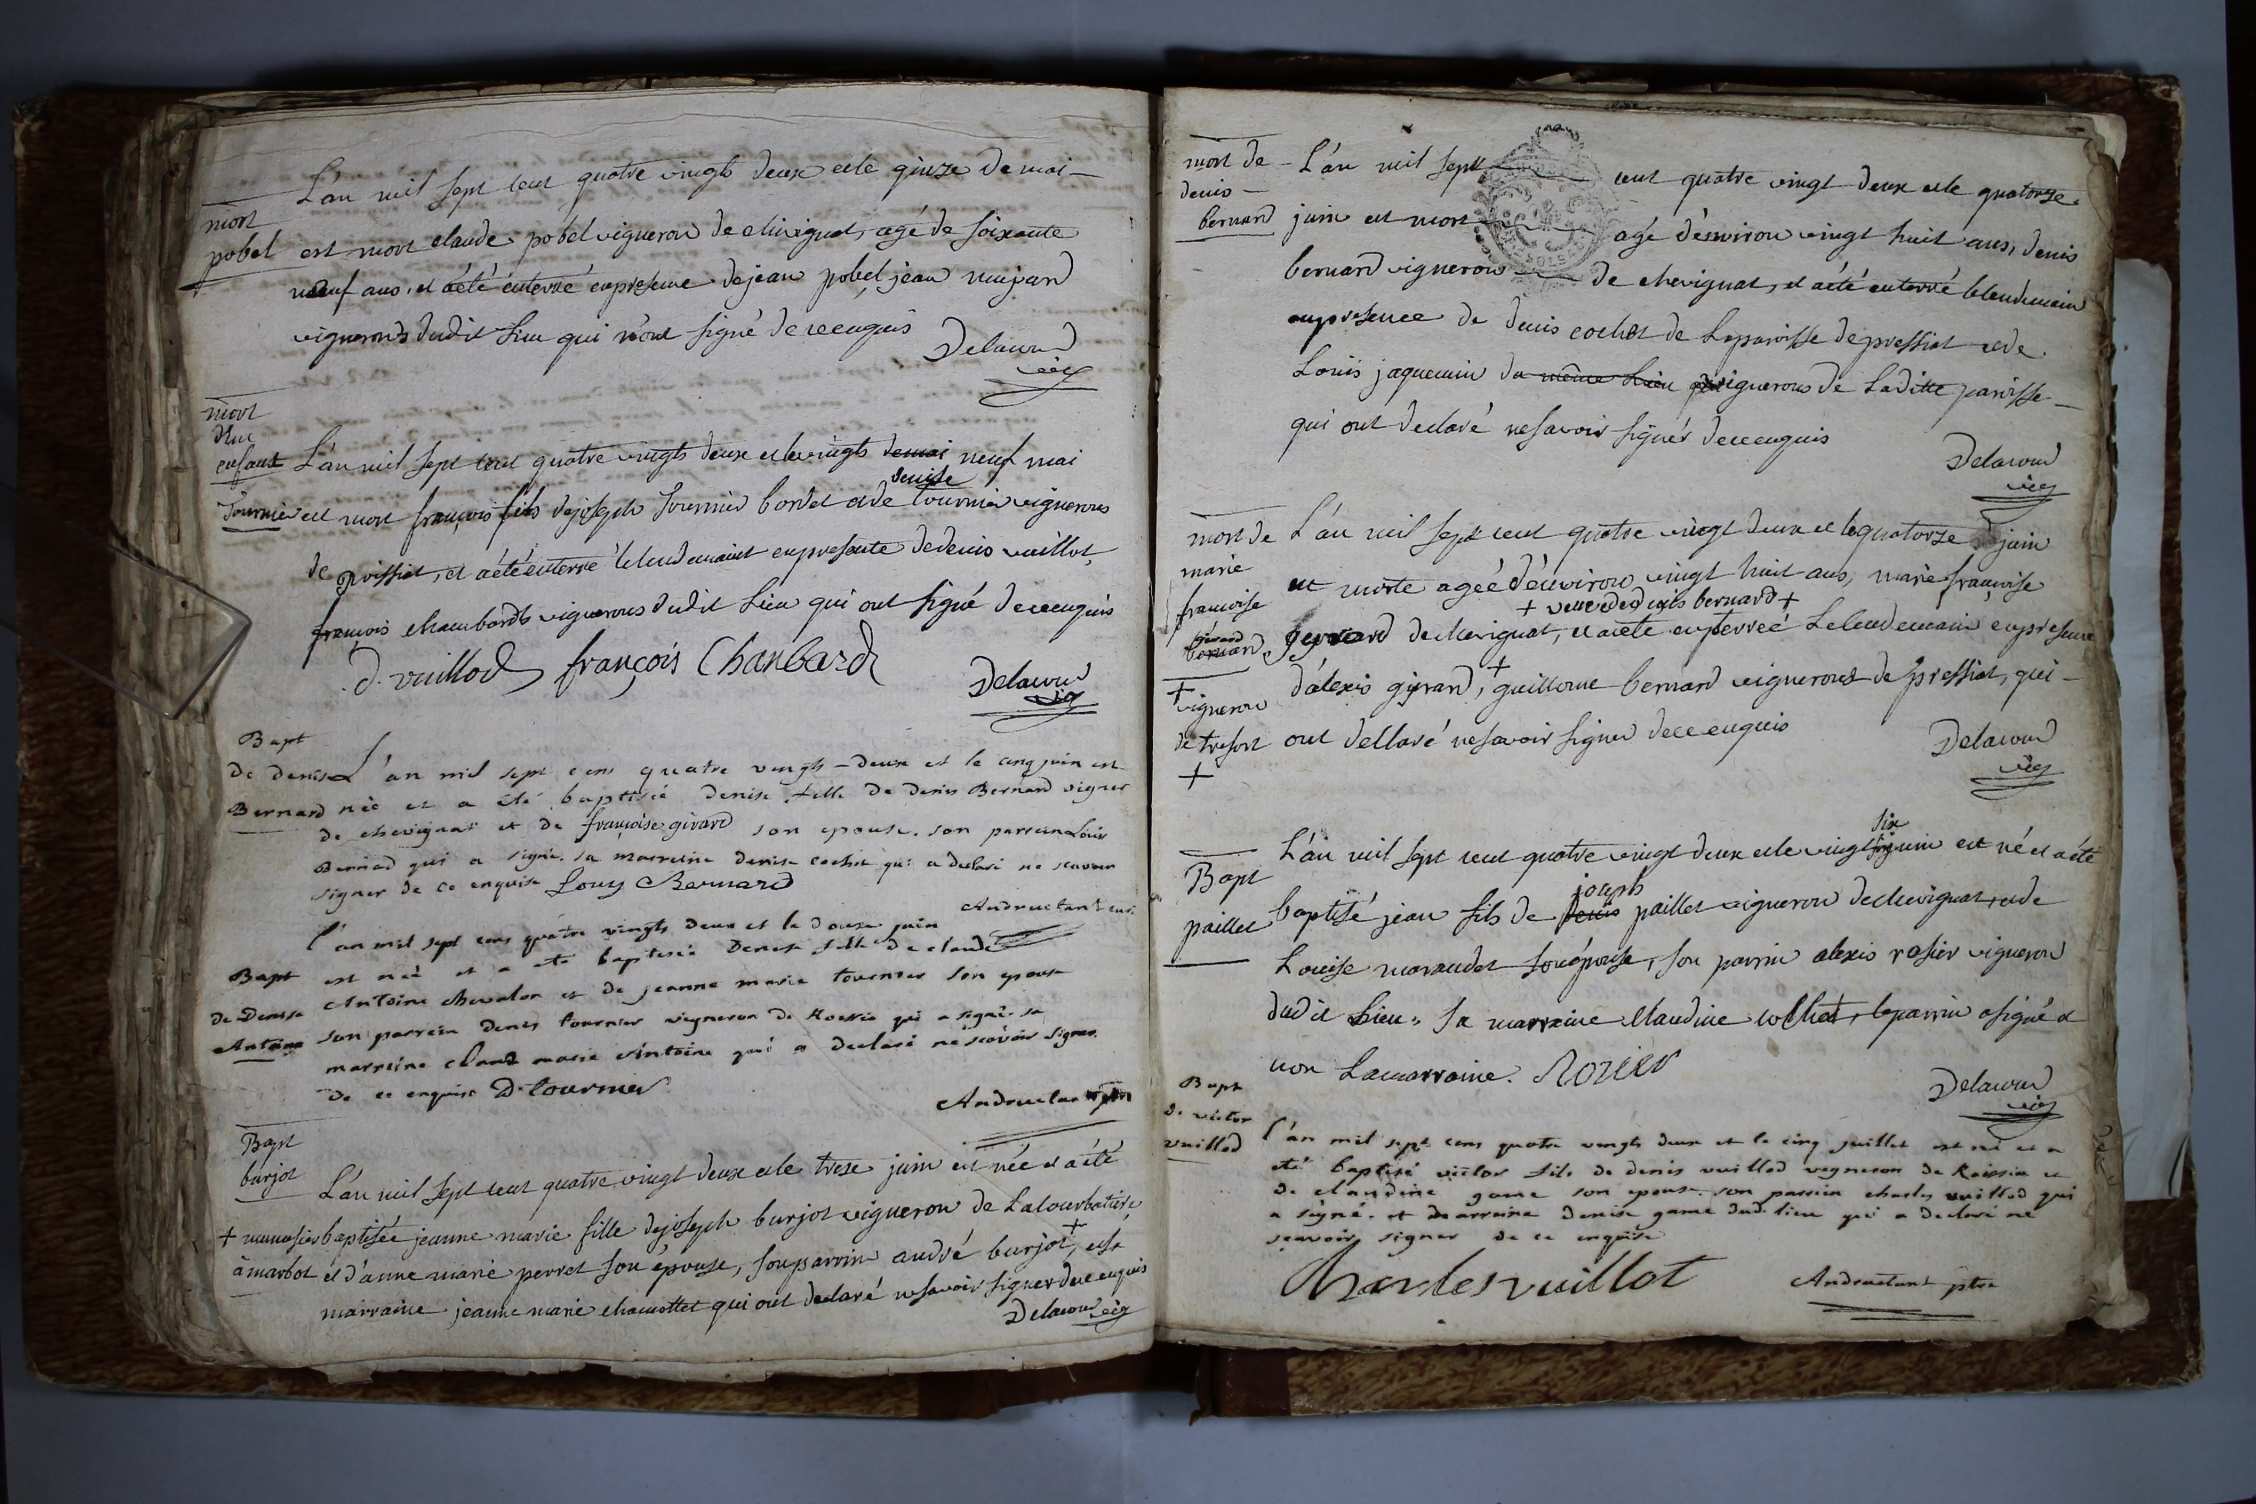 mort
pobel
L'an mil sept cent quatre vingts deux et le quize de mai
est mort claude pobel vigneron de chivignat, agé de soixante
neuf ans, et a été enterré en presence de jean pobel, jean
vignerons dudit lieu qui n'ont signé de ce enquis
Delacour
vic
mort
d'un
enfant
Tournier
L'an mil sept cent quatre vingts deux et le vingts demai neuf mai
denise
est mort françois fils de joseph Tournier bordet et de tournier vignerons
de poissiat, et a été enterré le lendemaint en presente de denis vuillot,
françois chambards vignerons dudit lieu qui ont signé de ce enquis
d. vuillod françois Chanbard
Delacour
vic
Bapt
de denise
Bernard
L'an mil sept cens quatre vingts-deux et le cinq juin est
née et a été baptisée denise fille de denis Bernard vigner
de chevignat et de françoise girard son epouse. son parrein Louis
Bernad qui a signé. sa marreine denise cochet qui a declaré ne scavoir
signer de ce enquise Louy Bernard
Andruetant curé
Bapt
de Denise
Antoine
l'an mil sept cens quatre vingts deux et le douze juin
est née et a eté baptisée Denise fille de claude
Antoine chevalon et de jeanne marie tournier son epouse
son parrein denis tournier vigneron de Roissia qui a signé. sa
marreine claud marie Antoine qui a declaré ne scavoir signer
de ce enquise D. tournier
Andruetan ptre
Bapt
burjot
L'an mil sept cent quatre vingt deux et le treze juin est née et a été
baptisée jeanne marie fille de joseph burjot vigneron de Latourbatiere
et d'anne marie perret son épouse, son parrin andré burjot + et sa
+
à marbot
marraine jeanne marie chamottet qui ont declaré ne savoir signer de ce enquis
Delacour vic
mort de
denis
bernard
L'an mil sept cent quatre vingt deux et le quatorze
juin est mort agé d'environ vingt huit ans, denis
bernard vigneron de chevignat, et a été enterré le lendemain
en presence de denis cochet de La paroisse de pressiat et de
Louis jaquemin du même lieu vignerons de Laditte paroisse
qui ont declaré ne savoir signér de ce enquis
Delacour
vic
mort de
marie
francoise
gérard
bernard
L'an mil sept cent quatre vingt deux et le quatorze de juin
est morte agée d'environ vingt huit ans, marie françoise
+ veuve de denis bernard +
gérard de chevignat, et a été enterreé Le lendemain en presence
d'alexis girard, + guillome bernard vignerons de pressiat, qui
ont dellaré ne savoir signer de ce enquis
+ vigneron
de tresort
+
Delacour
vic
Bapt
paillet
six
L'an mil sept cent quatre vingt deux et le vingt juin est né et a été
joseph
baptisé jean fils de denis paillet vigneron de chevignat, et de
Louise maraudet son épouse, son parrin alexis rosier vigneron
dudit Lieu, sa marraine claudine cochet, le parrin a signé et
non La marraine. Rozier
Delacour
vic
Bapt
de victor
vuillod
l'an mil sept cens quatre vingts deux et le cinq juillet est né et a
eté baptisé victor fils de denis vuillod vigneron de Roissia et
de claudine game son epouse. son parrein charles vuillod qui
a signé. et marraine denise game dudit lieu qui a declaré ne
scavoir signer de ce enquise
Charles vuillot
Andruetant ptre